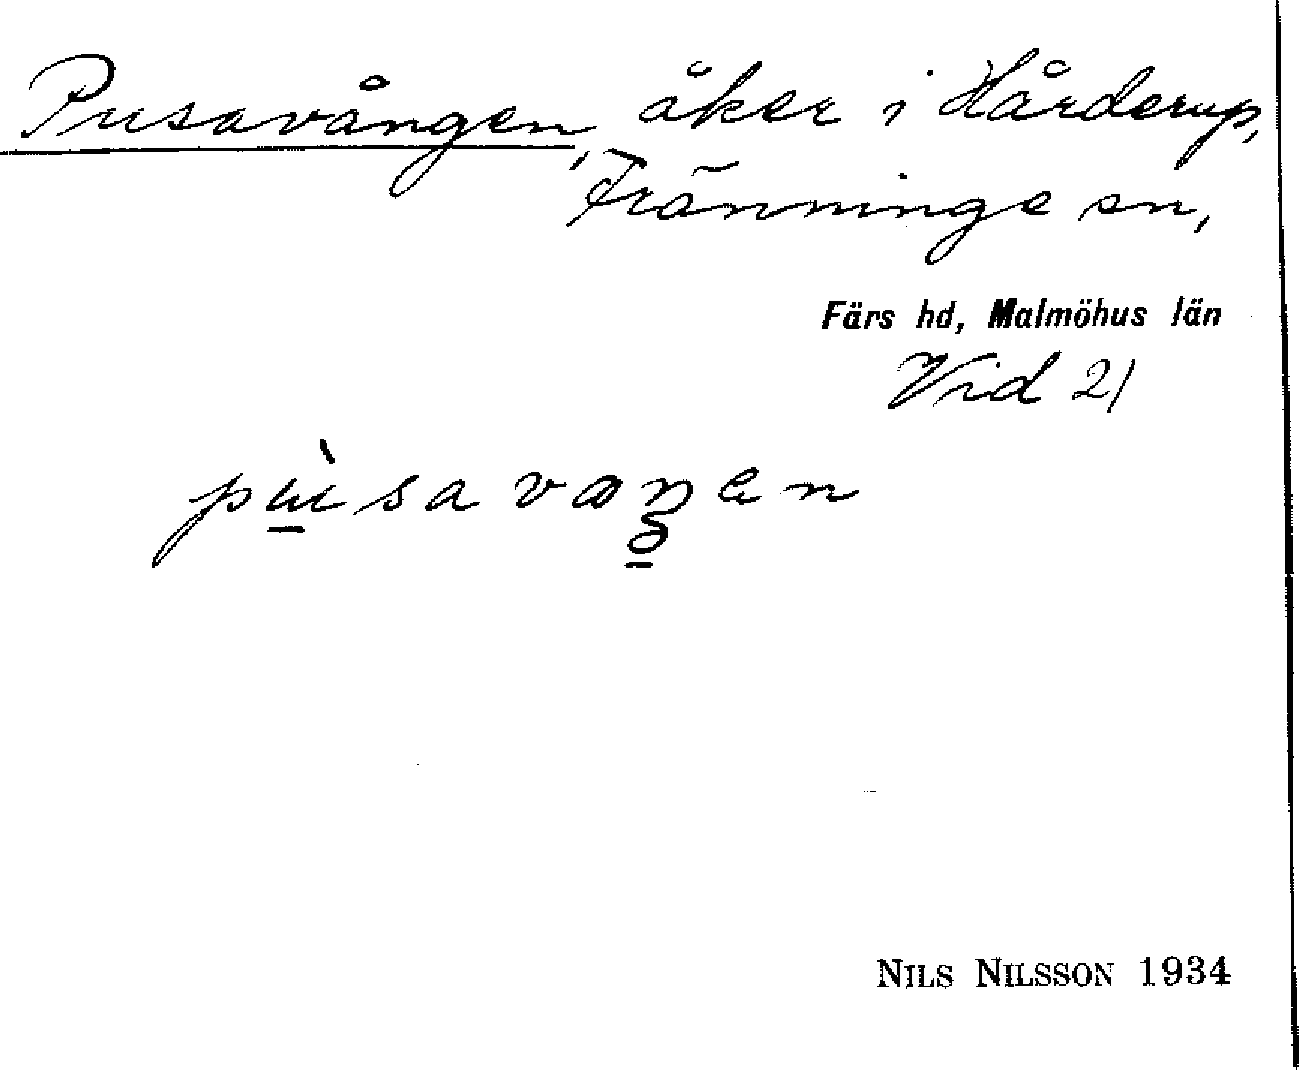 Pusavången, åker i Hårderup,
Tränninge sn,
Färs hd, Malmöhus län
Vid 21
NILS NILSSON 1934